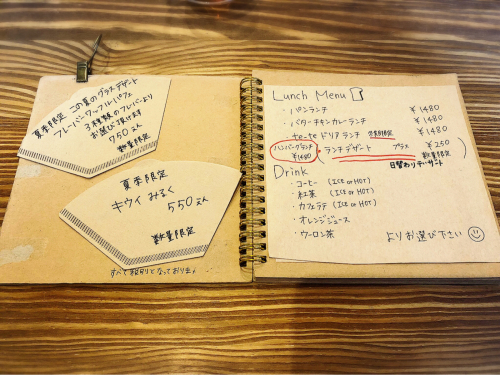 夏季限定
この夏のグラスデザート
フレーバーワッフルパフェ
3種類のフレーバーより
お選び頂けます
750えん
数量限定
夏季限定
キウイみるく
550えん
数量限定
すべて税別となっております
Lunch Menu
・パンランチ ¥1480
・バターチキンカレーランチ ¥1480
・te-te ドリアランチ ¥1480
ハンバーグランチ
¥1480
ランチデザート プラス ¥250
数量限定
日替わりデザート
Drink
・コーヒー (ICE or HOT)
・紅茶 (ICE or HOT)
・カフェラテ (ICE or HOT)
・オレンジジュース
・ウーロン茶
よりお選び下さい